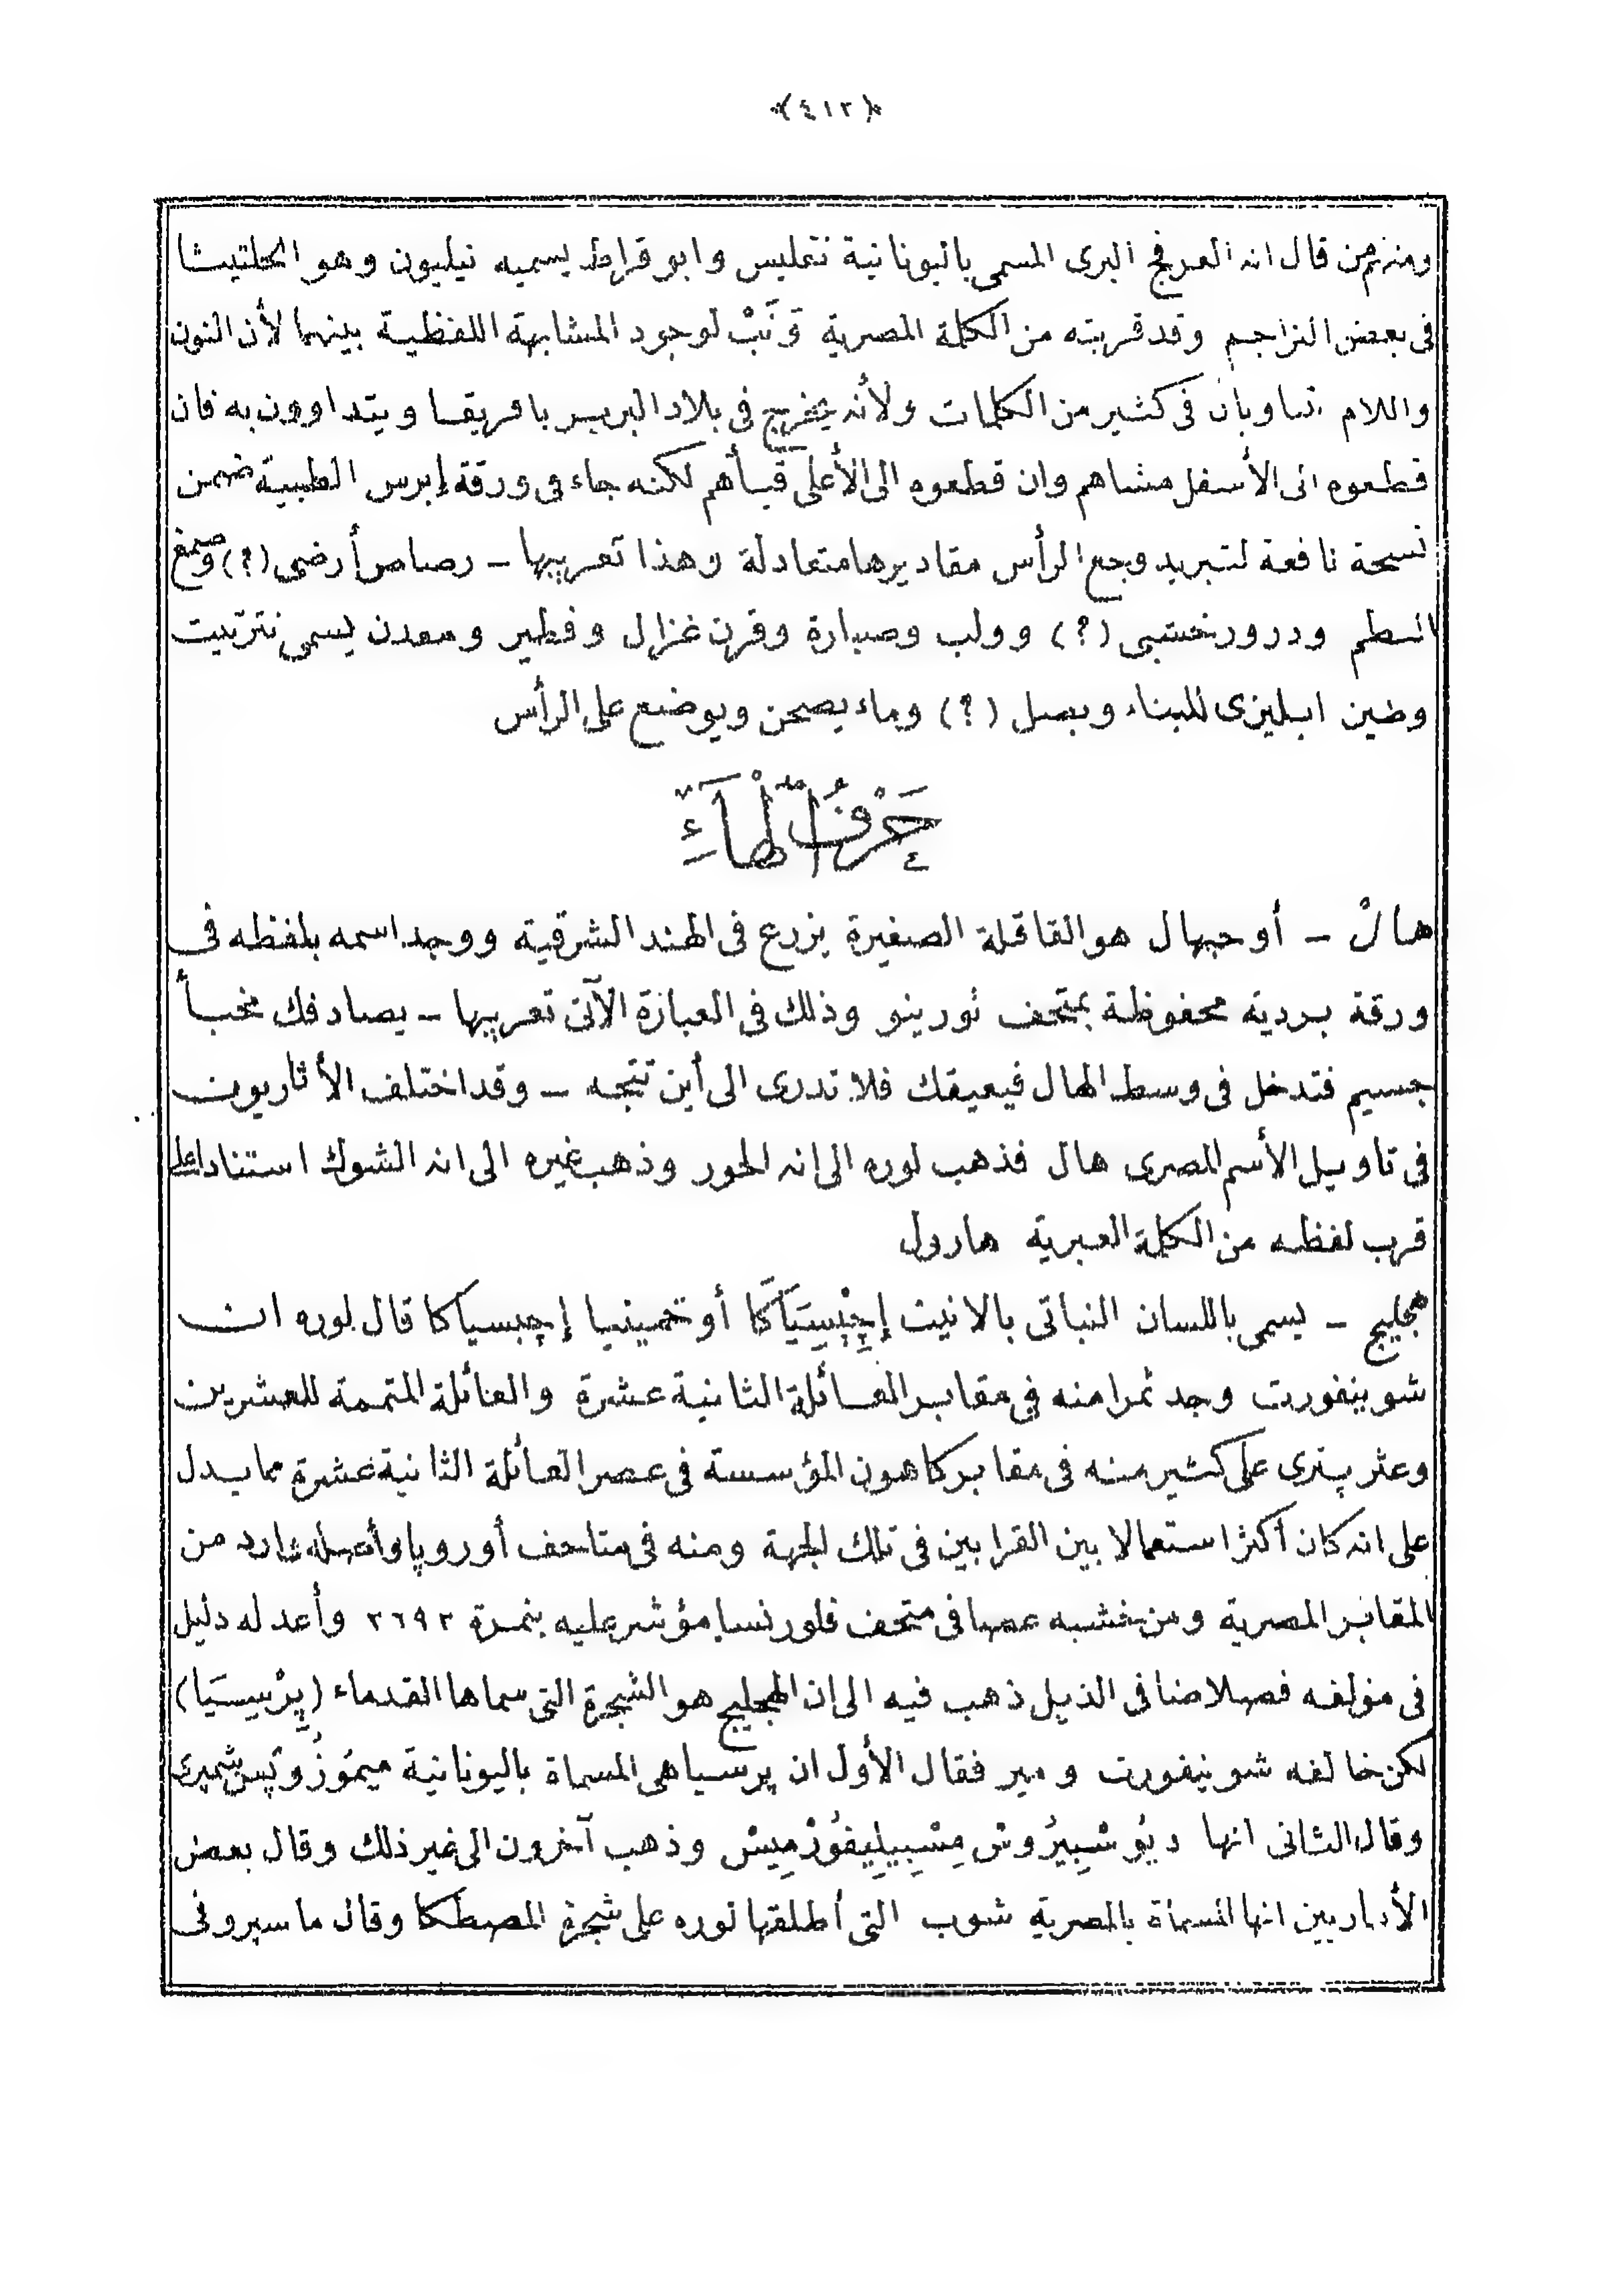 ﴿٤١٢﴾
ومنهم من قال انه العرفج البرى المسمى باليونانية نتمليس وابوقراط يسميه نيليون وهو الحلتيثا
فى بعض التراجم وقد قربته من الكلمة المصرية تونَبْ لوجود المشابهة اللفظية بينهما لأن النون
واللام يتناوبان فى كثير من الكلمات ولأنه يتفرج فى بلاد البربر بافريقا ويتداوون به فان
قطعوه الى الأسفل مشاهم وان قطعوه الى الأعلى قيأهم لكنه جاء فى ورقة إبرس الطبية ضمن
نسخة نافعة لتبريد وجع الرأس مقاديرها متعادلة وهذا تعريبها – رصاص أرضى (؟) وصمغ
السطم ودرور خشبى (؟) وولب وصبارة وقرن غزال وفطير ومعدن يسمى نترتيت
وطين ابليزى للبناء وبصل (؟) وماء يصحن ويوضع على الرأس
حَرْفُ الْهَآءِ
هالْ – أو حبهال هو القاقلة الصغيرة يزرع فى الهند الشرقية ووجد اسمه بلفظه فى
ورقة بردية محفوظة بمتحف تورينو وذلك فى العبارة الآتى تعريبها – يصادفك مخبأ
جسيم فتدخل فى وسط الهال فيعيقك فلا تدرى الى أين تتجه – وقد اختلف الأثاريون
فى تاويل الأسم المصرى هال فذهب لوره الى انه الحور وذهب غيره الى انه الشوك استنادا على
قرب لفظه من الكلمة العبرية هارول
هجليج – يسمى باللسان النباتى بالانيت إچِبْسِيَاكَا أو تخمينيا إچبسياكا قال لوره ان
شوينفورت وجد ثمرا منه فى مقابر العائلة الثانية عشرة والعائلة المتممة للعشرين
وعثر پترى على كثير منه فى مقابر كاهون المؤسسة فى عصر العائلة الثانية عشرة مما يدل
على انه كان أكثر استعمالا بين القرابين فى تلك الجهة ومنه فى متاحف أوروپا وأصله وارد من
المقابر المصرية ومن خشبه عصا فى متحف فلورنسا مؤشر عليه بنمرة ٢٦٩٢ وأعد له دليل
فى مؤلفه فصلا ضافى الذيل ذهب فيه الى ان الهجليج هو الشجرة التى سماها القدماء (پِرْسِيَا)
لكن خالفه شوينفورت ومير فقال الأول ان پرسيا هى المسماة باليونانية ميمُوزُوپس شمپرى
وقال الثانى انها ديُوسْپِيرُوسْ مِسْپِيلِيفُورْمِيسْ وذهب آخرون الى غير ذلك وقال بعض
الأثاريين انها المسماة بالمصرية شوب التى أطلقها لوره على شجرة المصطكا وقال ماسپرو فى